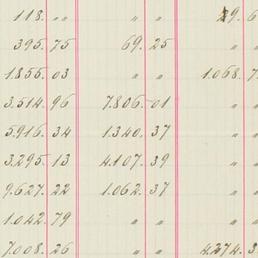 118. " " " 29. 6
395. 75 69. 25 "
1.855. 03 " " 1.068. 7
3.514. 96 7.806. 01 "
5.916. 34 1.340. 37 "
3.295. 13 4.107. 39 "
9.627. 22 1.062. 37 "
1.042. 79 " " "
7.008. 26 " " 4.274. 3